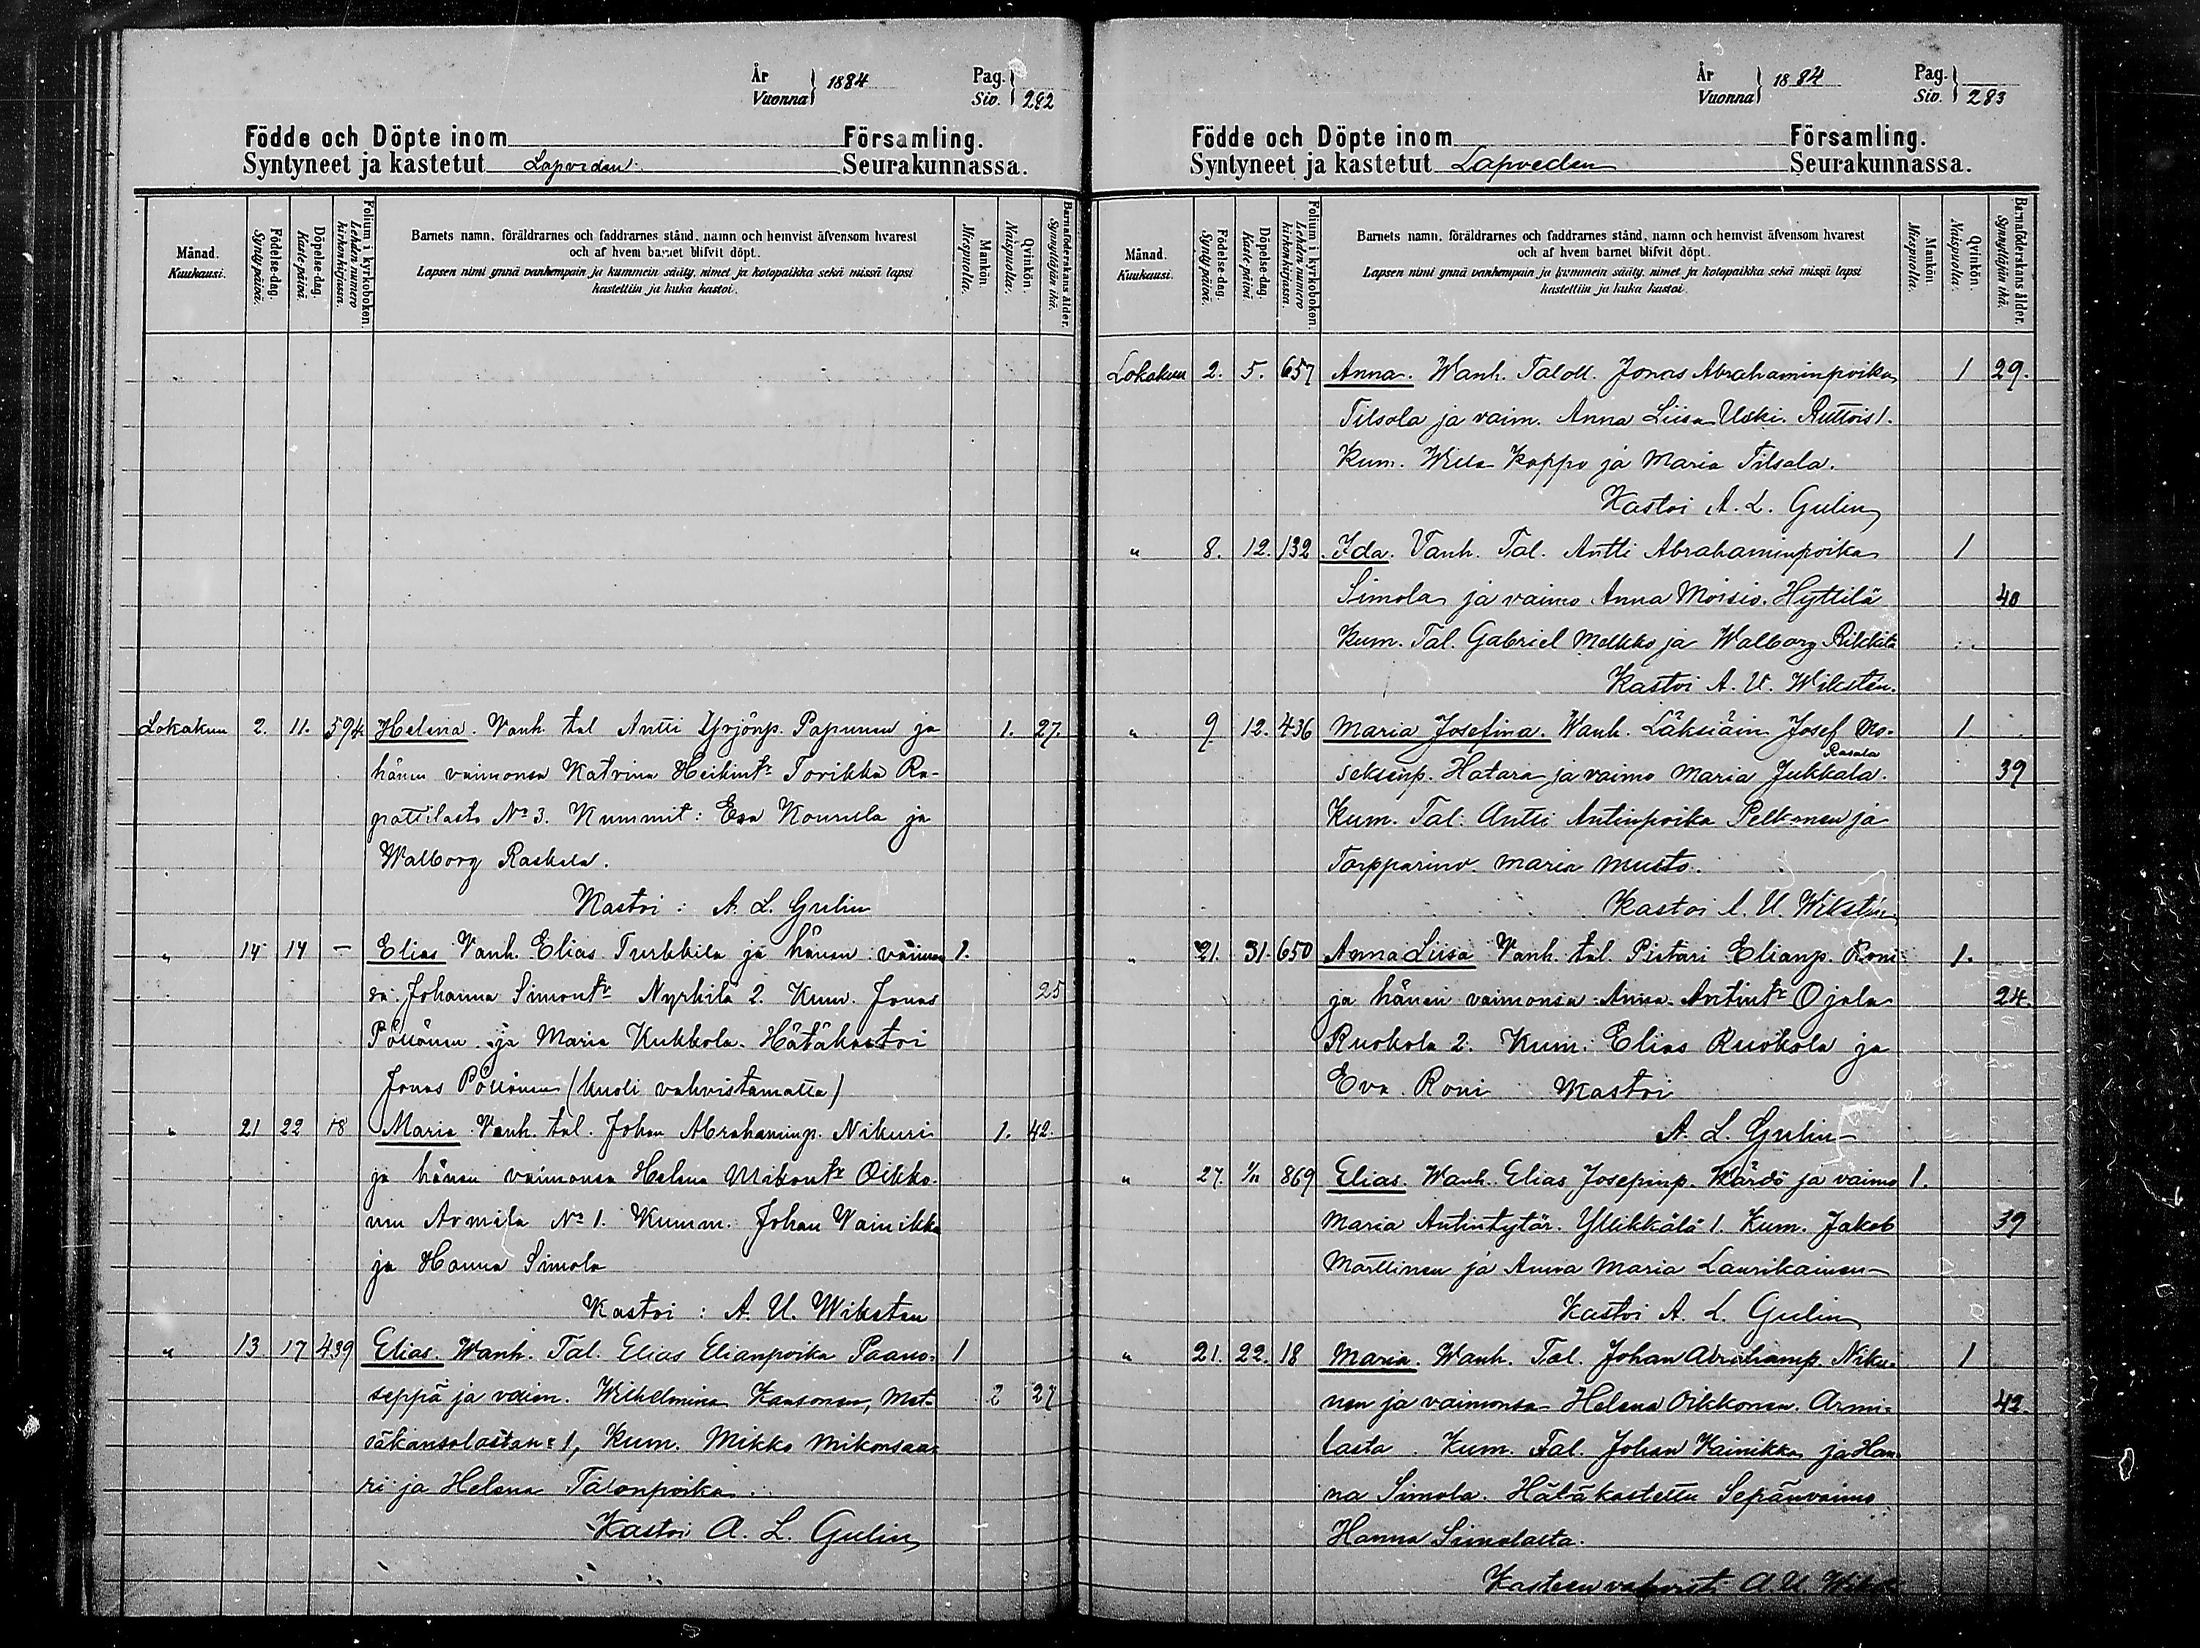 År
Vuonna } 1884 Pag.
Siv. } 282
Födde och Döpte inom Församling.
Syntyneet ja kastetut Lapveden Seurakunnassa.
Månad.
Kuukausi.
Födelse-dag.
Synty päivä.
Döpelse-dag.
Kaste-päivä.
Folium i kyrkoboken.
Lehden numero
kirkonkirjassa.
Barnets namn, föräldrarnes och faddrarnes stånd, namn och hemvist äfvensom hvarest
och af hvem barnet blifvit döpt.
Lapsen nimi ynnä vanhempain ja kummein sääty, nimet ja kotopaikka sekä missä lapsi
kastettiin ja kuka kastoi.
Mankön.
Miespuolia.
Qvinkön.
Naispuolia.
Barnaföderskans ålder.
Synnyttäjän ikä.
Lokakuu 2. 11. 594. Helena. Vanh. tal Antti Yrjönp. Papunen ja 1. 27.
hänen vaimonsa Katrina Heikintr Torikka Ra-
pattilasta No 3. Kummit: Eva Kounula ja
Walborg Raskala.
Kastoi: A. L. Gulin
" 14 14 — Elias Vanh. Elias Turkkila ja hänen vaimon 1.
sa Johanna Simontr Nyrhilä 2. Kum. Jonas 25
Pöllönen ja Maria Kukkola. Hätäkastoi
Jonas Pöllönen (kuoli vahvistamatta)
" 21 22 18 Maria Vanh. tal. Johan Abrahaminp. Nikuri 1. 42.
ja hänen vaimonsa Helena Mikontr Oikko-
nen Armila No 1. Kumm. Johan Vainikka
ja Hanna Simola
Kastoi: A. U. Wiksten
" 13 17 439 Elias. Wanh. Tal. Elias Elianpoika Paano- 1
seppä ja vaim. Wilhelmina Kansonen, Met- 2 27
säkansolastan: 1, Kum. Mikko Mikonsaa-
ri ja Helena Talonpoika.
Kastoi A. L. Gulin
År
Vuonna } 1884 Pag.
Siv. } 283
Födde och Döpte inom Församling.
Syntyneet ja kastetut Lapveden Seurakunnassa.
Månad.
Kuukausi.
Födelse-dag.
Synty päivä.
Döpelse-dag.
Kaste-päivä.
Folium i kyrkoboken.
Lehden numero
kirkonkirjassa.
Barnets namn, föräldrarnes och faddrarnes stånd, namn och hemvist äfvensom hvarest
och af hvem barnet blifvit döpt.
Lapsen nimi ynnä vanhempain ja kummein sääty, nimet ja kotopaikka sekä missä lapsi
kastettiin ja kuka kastoi.
Mankön
Miespuolia.
Qvinkön.
Naispuolia.
Barnaföderskans ålder.
Synnyttäjän ikä.
Lokakuu 2. 5. 657 Anna. Wanh. Taloll. Jonas Abrahaminpoika 1 29.
Tilsala ja vaim. Anna Liisa Uski. Ruttois 1.
Kum. Wille Koppo ja Maria Tilsala.
Kastoi A. L. Gulin
" 8. 12. 132 Ida. Vanh. Tal. Antti Abrahaminpoika 1
Simola ja vaimo Anna Moisio. Hyttilä 40
Kum. Tal. Gabriel Melkko ja Walborg Rikkilä
Kastoi A. U. Wikstén.
" 9 12. 436 Maria Josefina. Wanh. Läksiäin Josef Mo- 1
Rasala
seksenp. Hatara ja vaimo Maria Jukkala. 39
Kum. Tal. Antti Antinpoika Pelkonen ja
Torpparinv. Maria Musto.
Kastoi A. U. Wikstén
" 21. 31. 650 Anna Liisa Vanh. tal. Pietari Elianp. Roni 1.
ja hänen vaimonsa Anna Antintr Ojala 24.
Ruohola 2. Kum: Elias Ruohola ja
Eva Roni Kastoi
A. L. Gulin
" 27. 1/11 869 Elias. Wanh. Elias Josepinp. Kärdö ja vaimo 1.
Maria Antintytär. Yllikkälä 1. Kum. Jakob 39
Marttinen ja Anna Maria Laurikainen
Kastoi A. L. Gulin
" 21. 22. 18 Maria. Wanh. Tal. Johan Abrahamp. Niku- 1
nen ja vaimonsa Helena Oikkonen. Armi- 42.
lasta. Kum. Tal. Johan Wainikka ja Han-
na Simola. Hätäkastettu Sepänvaimo
Hanna Simolalta.
Kasteen vahvisti A. U. Wikst